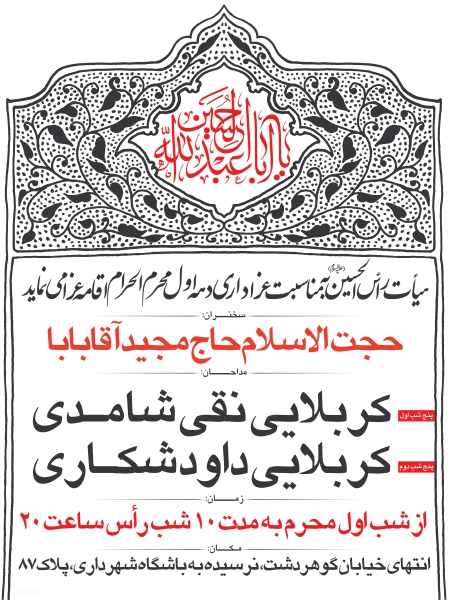 یا اباعبدالله الحسین
هیأت رأس الحسین (علیه‌السلام) به مناسبت عزاداری دهه اول محرم الحرام اقامه عزا می نماید
سخنران:
حجت الاسلام حاج مجید آقابابا
مداحان:
پنج شب اول کربلایی نقی شامدی
پنج شب دوم کربلایی داود شکاری
زمان:
از شب اول محرم به مدت ۱۰ شب رأس ساعت ۲۰
مکان:
انتهای خیابان گوهردشت، نرسیده به باشگاه شهرداری، پلاک ۸۷